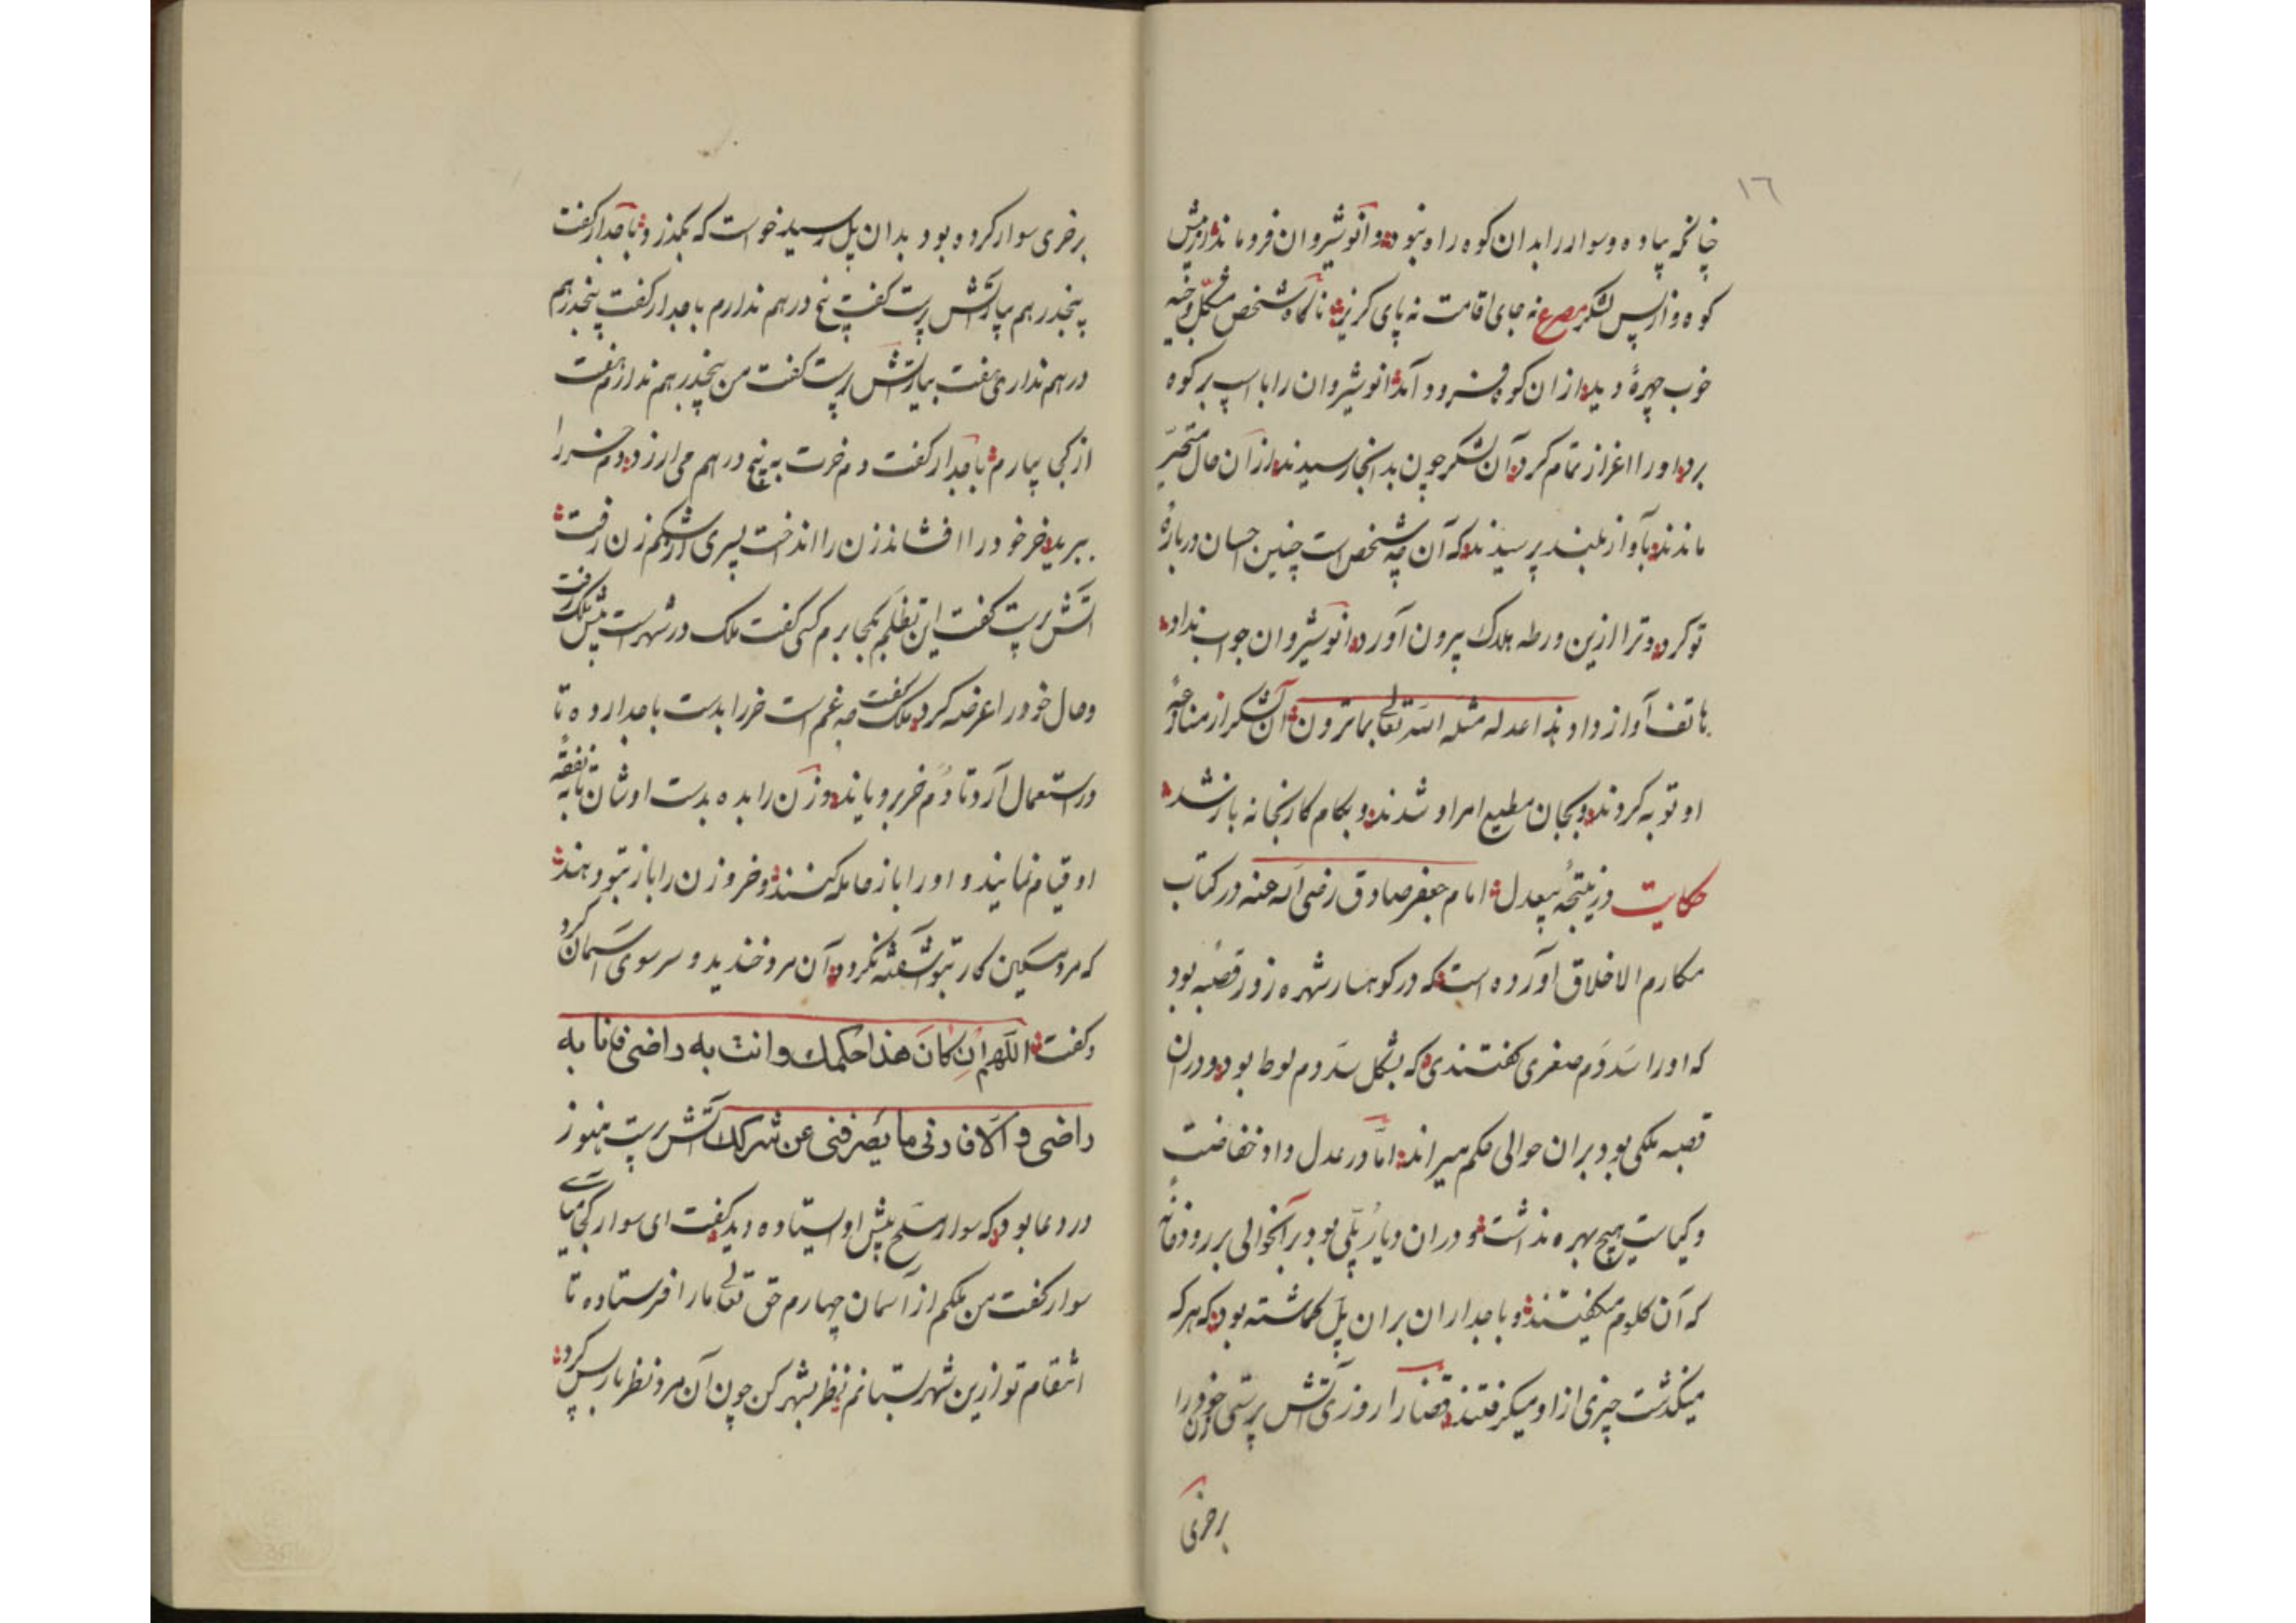 ١٦
چنانکه پیاده و سوار را بدان کوه راه نبود و انوشیروان فرو ماند از پیش
کوه و از پس لشکر مصرع نه جای اقامت نه پای گریز ناگاه شخص مشکّل و خجه
خوب چهرهٔ دید از ان کوه فرود آمد انوشیروان را با اسپ بر کوه
برد و او را اعزاز تمام کرد آن لشکر چون بدانجا رسیدند از آن حال متحیّر
ماندند بآواز بلند پرسیدند که آن چه شخص است چنین احسان دربارهٔ
تو کرد و ترا ازین ورطه هلاک بیرون آورد انوشیروان جواب نداد
هاتف آواز داد هذا عدله مثله الله تعالی بما ترون آن لشکر از منازعهٔ
او توبه کردند و بجان مطیع امر او شدند و بکام کار بخانه باز شد
حکایت در نتیجهٔ بیعدل امام جعفر صادق رضی الله عنه در کتاب
مکارم الاخلاق آورده است که در کوهسار شهره زور قصبه بود
که او را سَدَوَم صغری گفتندی که بشکل سَدَوم لوطا بود و در ان
قصبه ملکی بود بران حوالی حکم میراند امّا در عدل و از
و کیاست هیچ بهره نداشت و در ان دیار پلی بود بر آنحوالی بر رودخانهٔ
که آن کلوم میگفتند و باجداران بران پل گماشته بود که هر که
میگذشت چیزی از او میگرفتند قضا را روزی آتش پرستی زن خود را
برخری
برخری سوار کرده بود بدان پل رسید خواست که بگذرد باجدار گفت
پنجدرهم بیار آتش پرست گفت پنج درهم ندارم باجدار گفت پنجدرهم
درهم نداری هفت بیار آتش پرست گفت من پنجدرهم ندارم هفت
از کجا بیارم باجدار گفت دم خرت به پنج درهم می ارزد دم خر را
ببرید خر خود را افشاند زن را انداخت پسری از شکم زن رفت
آتش پرست گفت این تظلم بکجا برم کسی گفت ملک در شهر است پیش ملک رفت
و حال خود را عرضه کرد ملک گفت چه غم است خر را بدست باجدار ده تا
در استعمال آرد تا دُم خر برویاند و زن را بده بدست اوشان تا به نفقهٔ
او قیام نمایند و او را باز حامله کنند و خر و زن را باز بتو دهند
که مرد مسکین کار بتو آشفته نگردد آن مرد خندید و سر سوی آسمان کرد
و گفت اللهم ان کان هذا حکمك وانت به راضی فانا به
راضی و الا فارنی ما یصرفنی عن شرکك آتش پرست هنوز
در دعا بود که سوار مسلح پیش او ایستاده دید گفت ای سوار کجا میائی
سوار گفت من ملکم از آسمان چهارم حق تعالی ما را فرستاده تا
انتقام تو ازین شهر بستانم نظر بشهر کن چون آن مرد نظر باز پس کرد